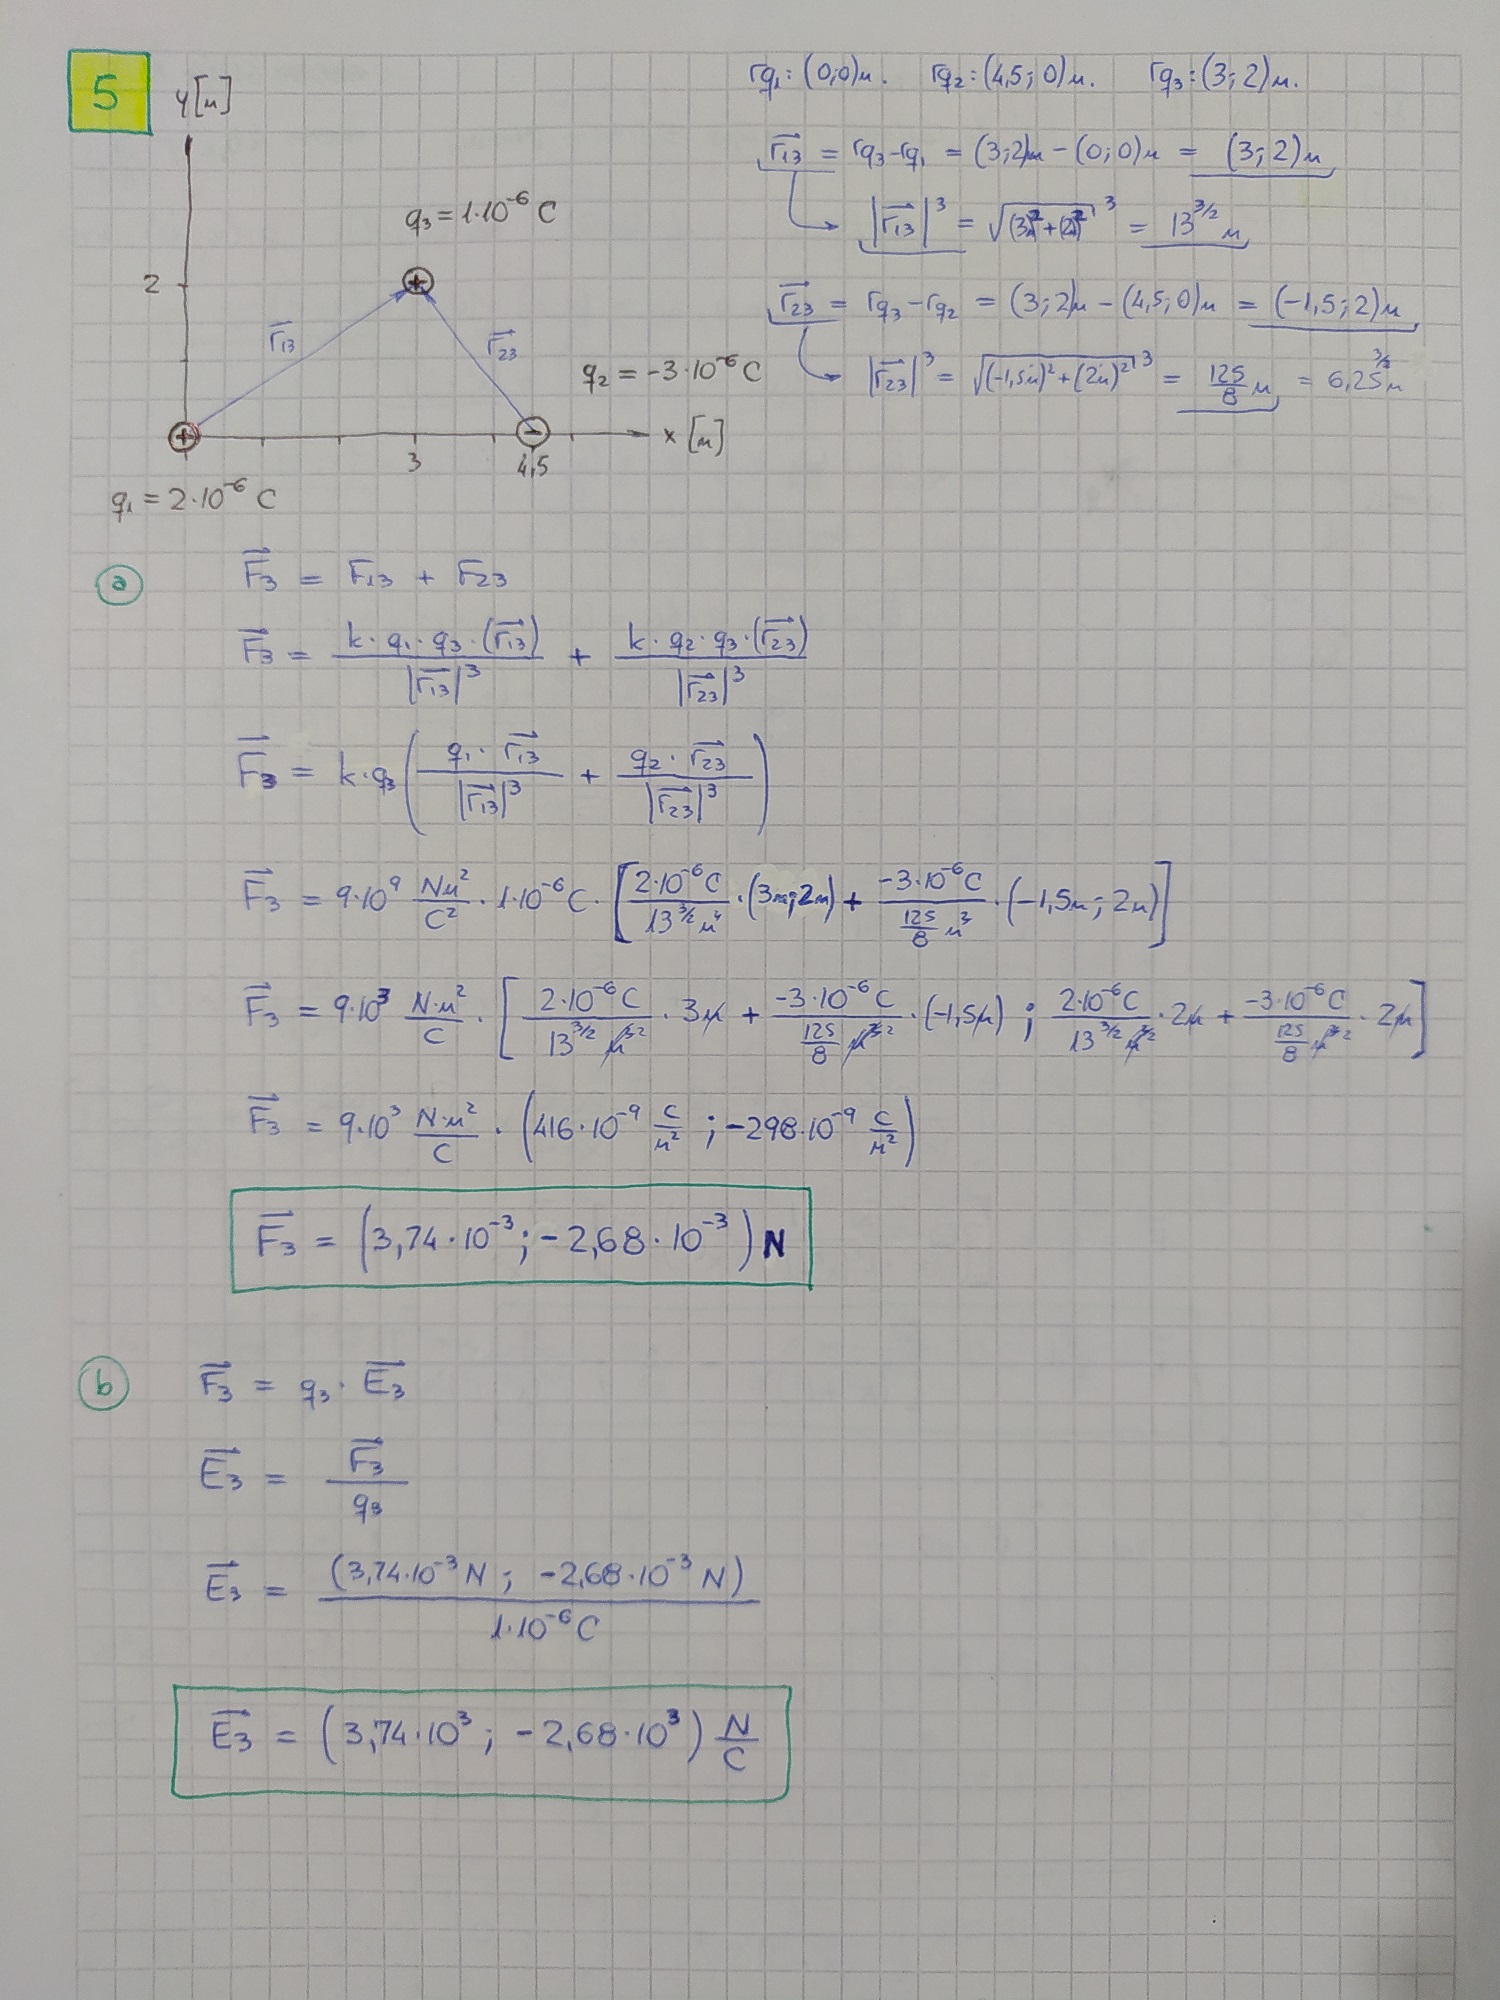 5
y[m]
rq₁: (0;0)m. rq₂: (4,5; 0)m. rq₃: (3; 2)m.
r₁₃⃗ = rq₃-rq₁ = (3;2)m - (0;0)m = (3; 2)m
|r₁₃⃗|³ = √((3m)²+(2m)²)³ = 13^(3/2) m
r₂₃⃗ = rq₃-rq₂ = (3; 2)m - (4,5; 0)m = (-1,5; 2)m
|r₂₃⃗|³ = √((-1,5m)²+(2m)²)³ = 125/8 m = 6,25^(3/2) m
q₃ = 1·10⁻⁶ C
+
2
r₁₃⃗ r₂₃⃗
q₂ = -3·10⁻⁶ C
+ - x [m]
3 4,5
q₁ = 2·10⁻⁶ C
a F₃⃗ = F₁₃ + F₂₃
F₃⃗ = k·q₁·q₃·(r₁₃⃗) / |r₁₃⃗|³ + k·q₂·q₃·(r₂₃⃗) / |r₂₃⃗|³
F₃⃗ = k·q₃ ( q₁·r₁₃⃗ / |r₁₃⃗|³ + q₂·r₂₃⃗ / |r₂₃⃗|³ )
F₃⃗ = 9·10⁹ Nm²/C² · 1·10⁻⁶ C · [ 2·10⁻⁶ C / 13^(3/2) m³ · (3m; 2m) + -3·10⁻⁶ C / 125/8 m³ · (-1,5m; 2m) ]
F₃⃗ = 9·10³ N·m²/C · [ 2·10⁻⁶ C / 13^(3/2) m² · 3m + -3·10⁻⁶ C / 125/8 m² · (-1,5m) ; 2·10⁻⁶ C / 13^(3/2) m² · 2m + -3·10⁻⁶ C / 125/8 m² · 2m ]
F₃⃗ = 9·10³ N·m²/C · ( 416·10⁻⁹ C/m² ; -298·10⁻⁹ C/m² )
F₃⃗ = (3,74·10⁻³ ; -2,68·10⁻³) N
b F₃⃗ = q₃·E₃⃗
E₃⃗ = F₃⃗ / q₃
E₃⃗ = (3,74·10⁻³ N ; -2,68·10⁻³ N) / 1·10⁻⁶ C
E₃⃗ = (3,74·10³ ; -2,68·10³) N/C